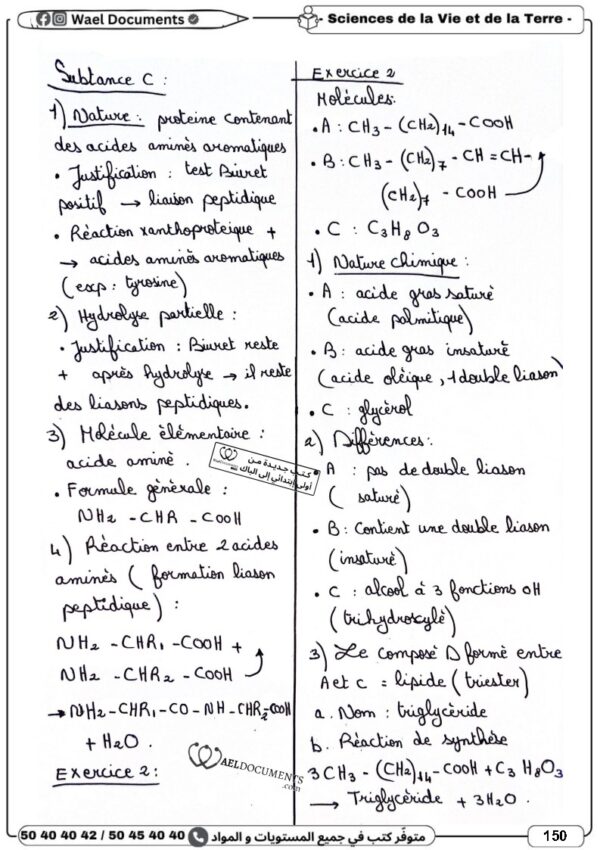 Wael Documents
- Sciences de la Vie et de la Terre -
Subtance C :
1) Nature : proteine contenant
des acides aminés aromatiques
• Justification : test Biuret
positif → liaison peptidique
• Réaction xanthoproteique +
→ acides aminés aromatiques
(exp : tyrosine)
2) Hydrolyse partielle :
• Justification : Biuret reste
+ après hydrolyse → il reste
des liasons peptidiques.
3) Molécule élémentaire :
acide aminé .
• Formule générale :
NH2 - CHR - COOH
4) Réaction entre 2 acides
aminés ( formation liason
peptidique) :
NH2 - CHR1 - COOH +
NH2 - CHR2 - COOH
→ NH2 - CHR1 - CO - NH - CHR2 - COOH
+ H2O .
Exercice 2 :
Exercice 2
Molécules:
• A : CH3 - (CH2)14 - COOH
• B : CH3 - (CH2)7 - CH = CH -
(CH2)7 - COOH
• C : C3H8O3
1) Nature chimique :
• A : acide gras saturé
(acide palmitique)
• B : acide gras insaturé
(acide oléique, 1 double liason)
• C : glycérol
2) Différences :
• A : pas de double liason
( saturé)
• B : Contient une double liason
(insaturé)
• C : alcool à 3 fonctions OH
(trihydroxylé)
3) Le composé D formé entre
A et C = lipide (triester)
a. Nom : triglycéride
b. Réaction de synthèse
3 CH3 - (CH2)14 - COOH + C3H8O3
→ Triglycéride + 3H2O .
كتب جديدة من
أولى إبتدائي إلى الباك
WAELDOCUMENTS
.com
50 40 40 42 / 50 45 40 40
متوفّر كتب في جميع المستويات و المواد
150